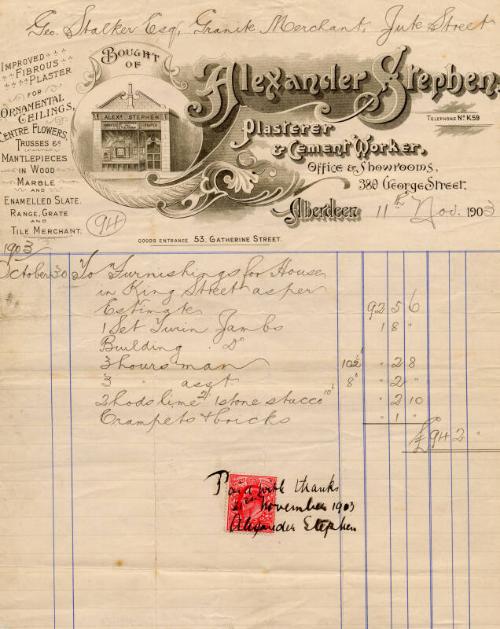 Geo. Stalker Esq, Granite Merchant, Jute Street
BOUGHT OF
Alexander Stephen,
TELEPHONE No. K59
Plasterer
& Cement Worker,
Office & Showrooms,
389 George Street.
Aberdeen 11th Nov. 1903
IMPROVED
FIBROUS
PLASTER
FOR
ORNAMENTAL
CEILINGS,
CENTRE FLOWERS,
TRUSSES &c
MANTLEPIECES
IN WOOD
MARBLE
AND
ENAMELLED SLATE.
RANGE, GRATE
AND
TILE MERCHANT.
ALEXR STEPHEN
94
GOODS ENTRANCE 53, CATHERINE STREET.
1903
October 30 To Furnishings for House
in King Street as per
Estimate 92 5 6
1 Set Twin Jambs 1 8 "
Building Do
3 hours man 10½ " 2 8
3 " asst 8 " 2 "
2 hods lime 1 stone stucco " 2 10
Crampets & bricks " 1 "
£94 2 "
Paid with thanks
November 1903
Alexander Stephen